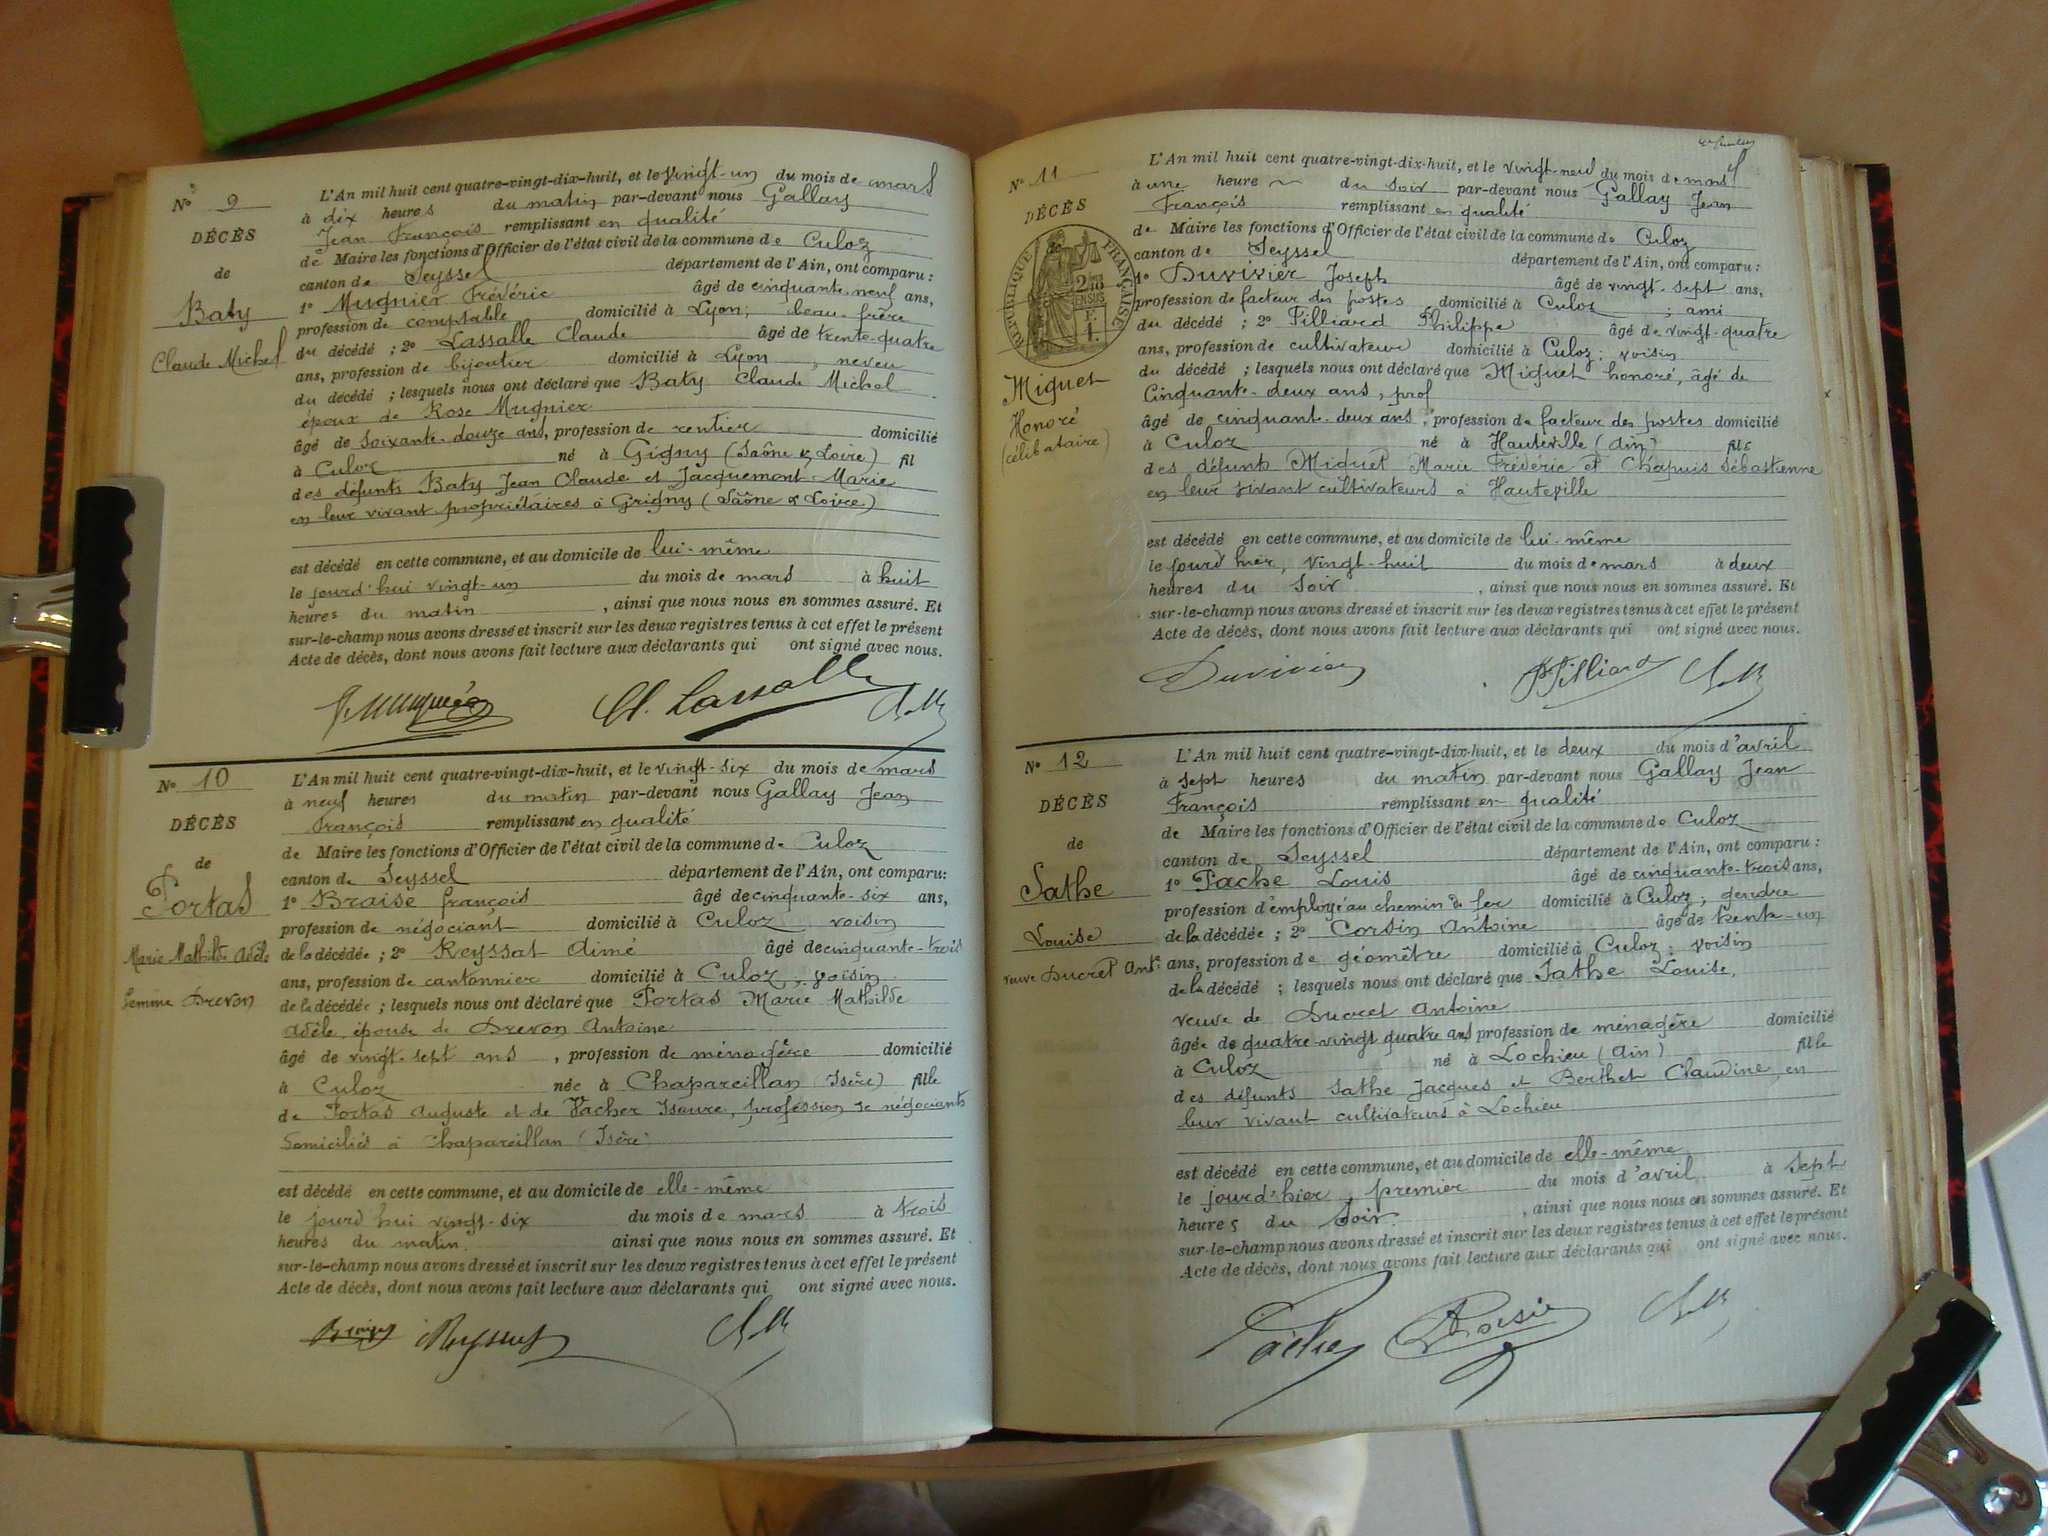 N° 9
DÉCÈS
de
Baty
Claude Michel
L'An mil huit cent quatre-vingt-dix-huit, et le vingt-un du mois de mars
à dix heures du matin par-devant nous Gallay
Jean François remplissant en qualité
de Maire les fonctions d'Officier de l'état civil de la commune de Culoz
canton de Seyssel département de l'Ain, ont comparu :
1° Mugnier Frédéric âgé de cinquante-neuf ans,
profession de comptable domicilié à Lyon; beau-frère
du décédé ; 2° Lassalle Claude âgé de trente-quatre
ans, profession de bijoutier domicilié à Lyon, neveu
du décédé ; lesquels nous ont déclaré que Baty Claude Michel
époux de Rose Mugnier
âgé de soixante-douze ans, profession de rentier domicilié
à Culoz né à Gigny (Saône & Loire) fil
des défunts Baty Jean Claude et Jacquemont Marie
en leur vivant propriétaires à Grigny (Saône & Loire)
est décédé en cette commune, et au domicile de lui-même
le jourd'hui vingt-un du mois de mars à huit
heures du matin, ainsi que nous nous en sommes assuré. Et
sur-le-champ nous avons dressé et inscrit sur les deux registres tenus à cet effet le présent
Acte de décès, dont nous avons fait lecture aux déclarants qui ont signé avec nous.
Cl. Lassalle
N° 10
DÉCÈS
de
Portas
Marie Mathilde Adèle
femme Drevon
L'An mil huit cent quatre-vingt-dix-huit, et le vingt-six du mois de mars
à neuf heures du matin par-devant nous Gallay Jean
François remplissant en qualité
de Maire les fonctions d'Officier de l'état civil de la commune de Culoz
canton de Seyssel département de l'Ain, ont comparu:
1° Braise françois âgé de cinquante-six ans,
profession de négociant domicilié à Culoz voisin
de la décédée ; 2° Reyssat Aimé âgé de cinquante-trois
ans, profession de cantonnier domicilié à Culoz, voisin
de la décédée ; lesquels nous ont déclaré que Portas Marie Mathilde
Adèle, épouse de Drevon Antoine
âgé de vingt-sept ans, profession de ménagère domicilié
à Culoz née à Chapareillan (Isère) fille
de Portas Auguste et de Vacher Isaure, profession de négociants
domiciliés à Chapareillan (Isère)
est décédé en cette commune, et au domicile de elle-même
le jourd'hui vingt-six du mois de mars à trois
heures du matin. ainsi que nous nous en sommes assuré. Et
sur-le-champ nous avons dressé et inscrit sur les deux registres tenus à cet effet le présent
Acte de décès, dont nous avons fait lecture aux déclarants qui ont signé avec nous.
N° 11
DÉCÈS
RÉPUBLIQUE FRANÇAISE
Miguet
Honoré
(célibataire)
L'An mil huit cent quatre-vingt-dix-huit, et le vingt-neuf du mois de mars
à une heure du soir par-devant nous Gallay Jean
François remplissant en qualité
de Maire les fonctions d'Officier de l'état civil de la commune de Culoz
canton de Seyssel département de l'Ain, ont comparu :
1° Duvivier Joseph âgé de vingt-sept ans,
profession de facteur des postes domicilié à Culoz ; ami
du décédé ; 2° Filliard Philippe âgé de vingt-quatre
ans, profession de cultivateur domicilié à Culoz; voisin
du décédé ; lesquels nous ont déclaré que Miguet honoré, âgé de
Cinquante-deux ans, prof
âgé de cinquant-deux ans, profession de facteur des postes domicilié
à Culoz né à Hauteville (Ain) fils
des défunts Miguet Marie Frédéric et Chapuis Sébastienne
en leur vivant cultivateurs à Hauteville
est décédé en cette commune, et au domicile de lui-même
le jourd'hier, vingt-huit du mois de mars à deux
heures du soir, ainsi que nous nous en sommes assuré. Et
sur-le-champ nous avons dressé et inscrit sur les deux registres tenus à cet effet le présent
Acte de décès, dont nous avons fait lecture aux déclarants qui ont signé avec nous.
Duvivier Filliard
N° 12
DÉCÈS
de
Sathe
Louise
veuve Ducret Ant.
L'An mil huit cent quatre-vingt-dix-huit, et le deux du mois d'avril
à sept heures du matin par-devant nous Gallay Jean
François remplissant en qualité
de Maire les fonctions d'Officier de l'état civil de la commune de Culoz
canton de Seyssel département de l'Ain, ont comparu :
1° Pache Louis âgé de cinquante-trois ans,
profession d'employé au chemin de fer domicilié à Culoz; gendre
de la décédée ; 2° Corsin Antoine âgé de trente-un
ans, profession de géomètre domicilié à Culoz; voisin
de la décédé ; lesquels nous ont déclaré que Sathe Louise,
veuve de Ducret Antoine
âgée de quatre-vingt quatre ans profession de ménagère domicilié
à Culoz né à Lochieu (Ain) fille
des défunts Sathe Jacques et Berthet Claudine, en
leur vivant cultivateurs à Lochieu
est décédé en cette commune, et au domicile de elle-même
le jourd'hier, premier du mois d'avril à sept
heures du soir. , ainsi que nous nous en sommes assuré. Et
sur-le-champ nous avons dressé et inscrit sur les deux registres tenus à cet effet le présent
Acte de décès, dont nous avons fait lecture aux déclarants qui ont signé avec nous.
Pache